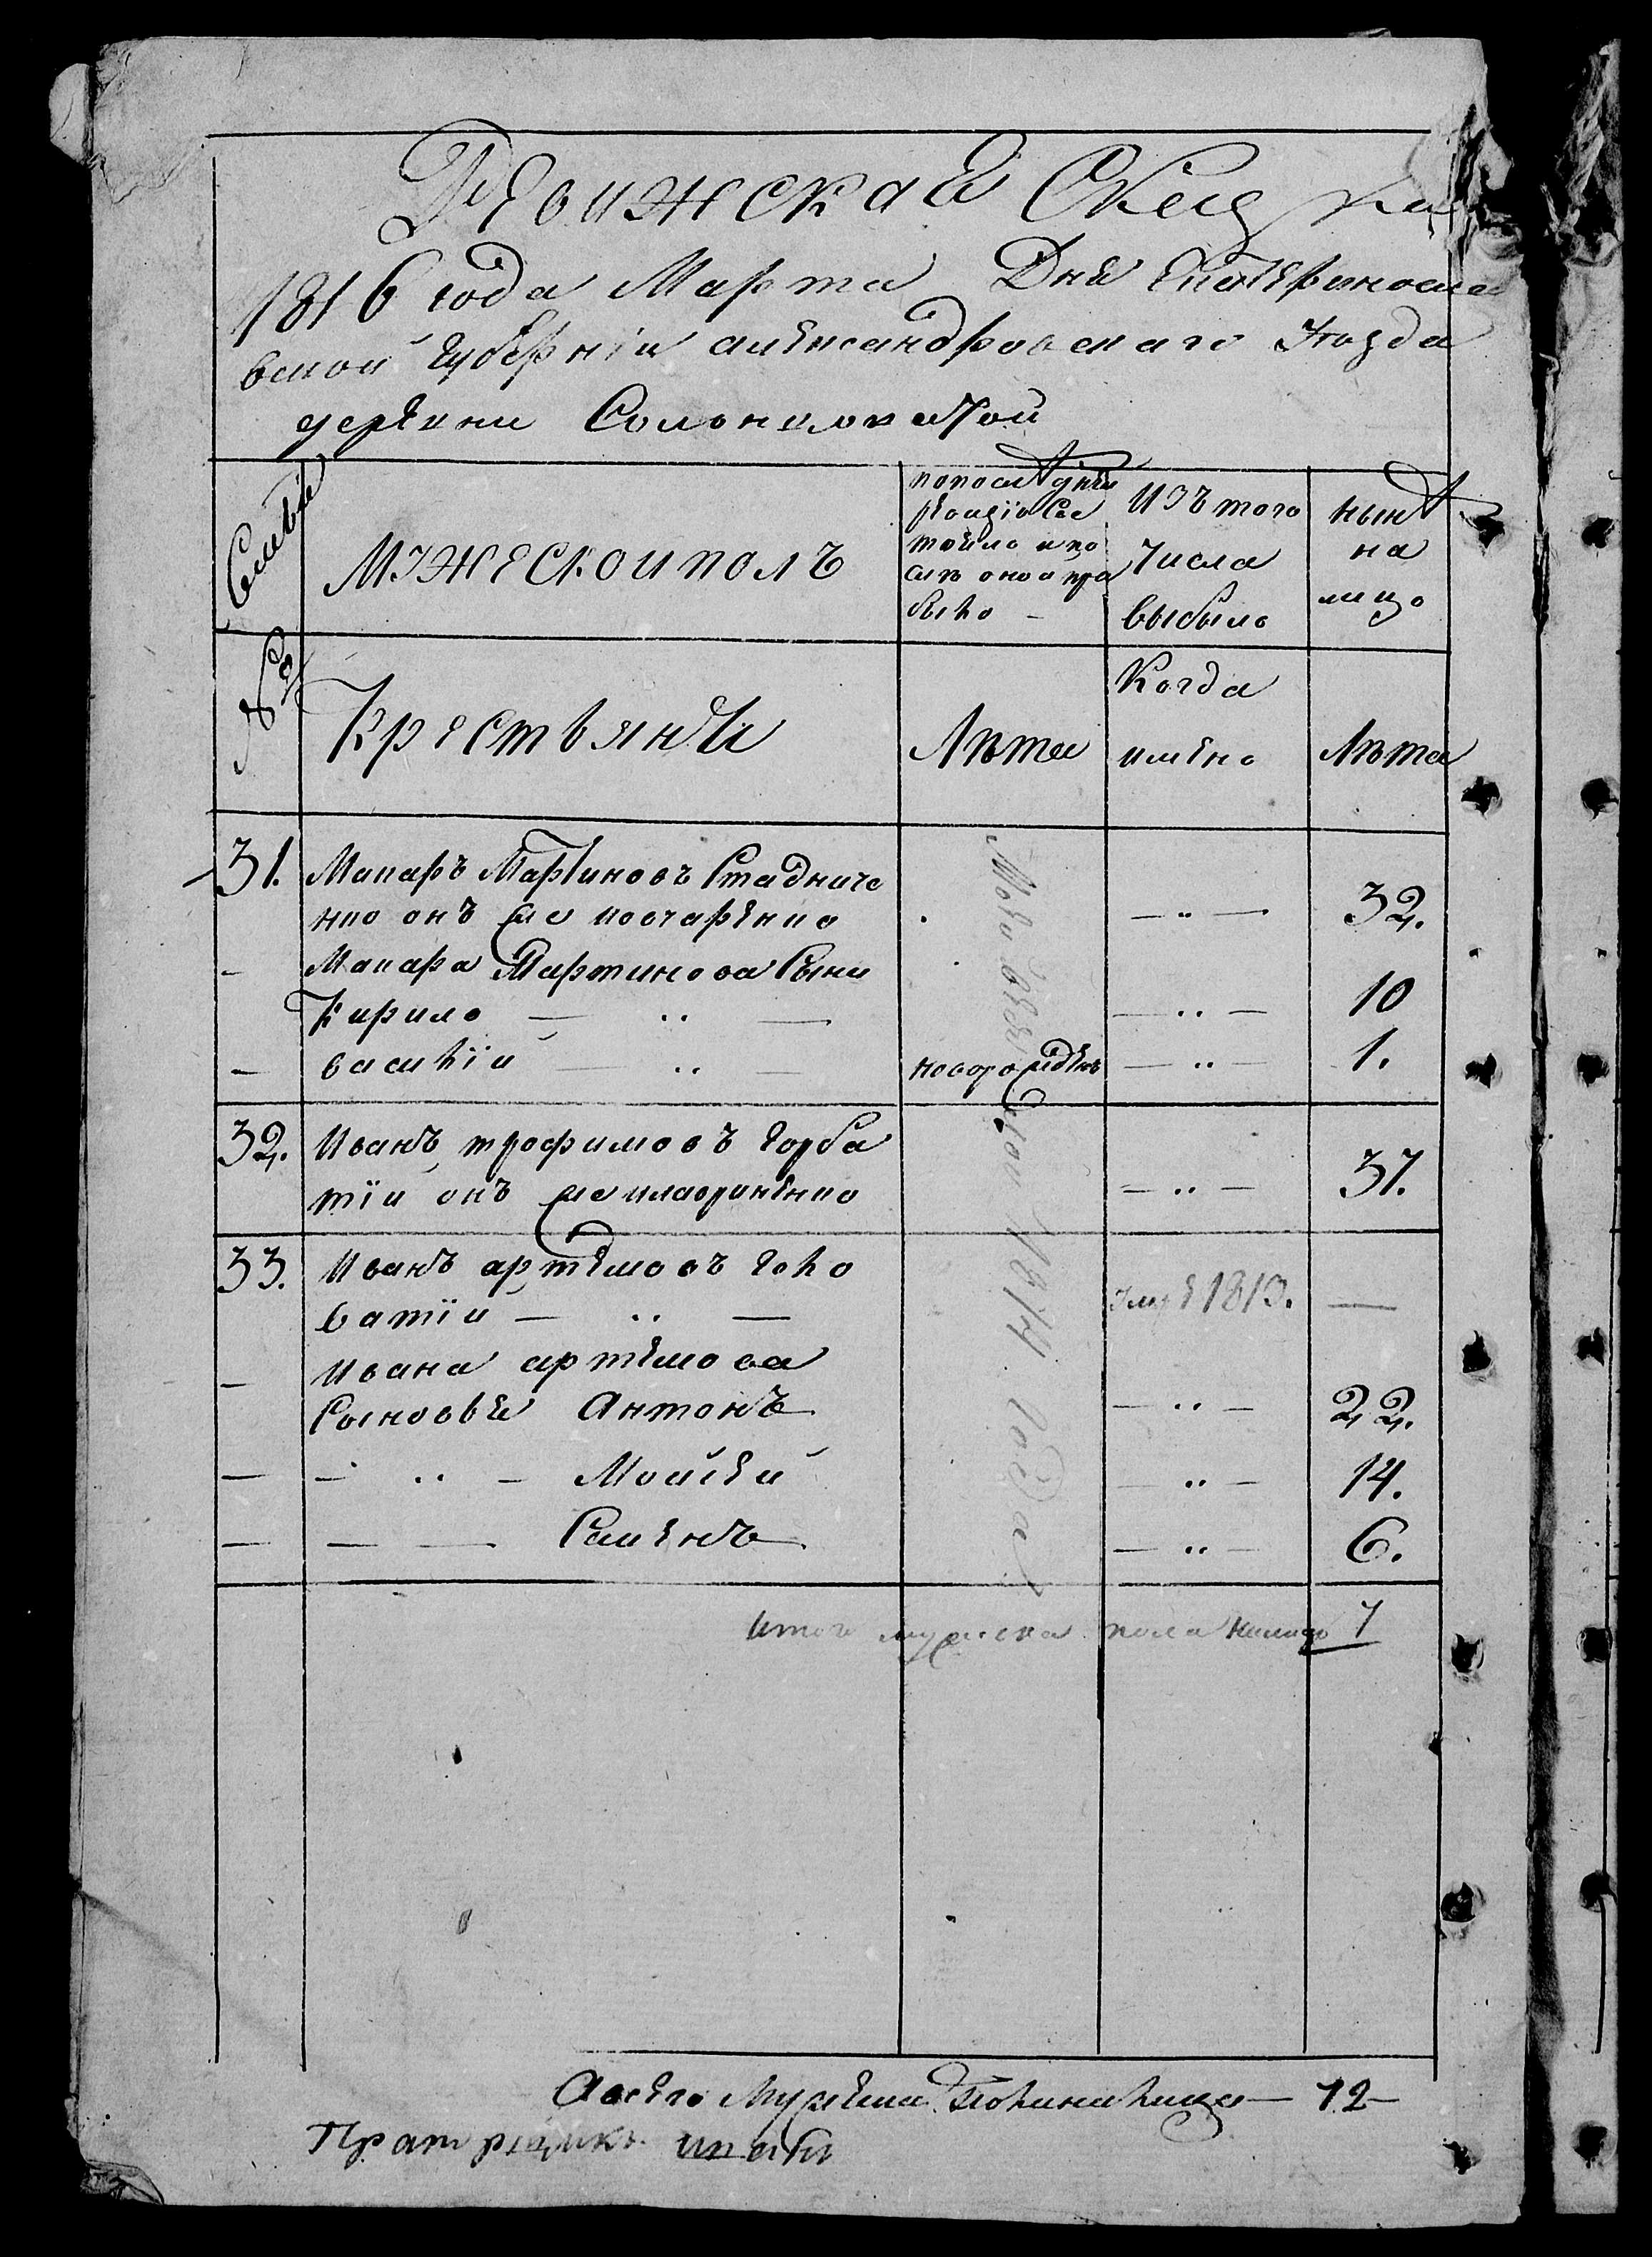 Ревижская Скаска
1816 года Марта Дня Екатериносла
вской губернїи александровского Уѣзда
деревни Сольниловатой
Семьи
мужескои полъ
попослѣдней
ревизїи сос
тояло и по
слѣ оной при
было –
Изъ того
числа
выбыло
нынѣ
на
лицо
№
Крестьянѣ
Лѣта
Когда
имено
Лѣта
31. Макаръ Мартиновъ Стадниче
нко онъ же кочаренко — " — 32.
– Макара Мартинова Сыни
Кирило — " — — " — 10
– василїи — " — новорожденъ — " — 1.
32. Иванъ трофимовъ горба
тїи онъ же — " — 37.
33. Иванъ артемовъ голо
ватїи — " — умре 1813. —
– Ивана артемова
Сыновья Антонъ — " — 22.
– – " – Моисей — " — 14.
– – — Семенъ — " — 6.
1814. года
Итого мужеска пола налицо 7
Авсего Мужеска Полу налицо — 72 –